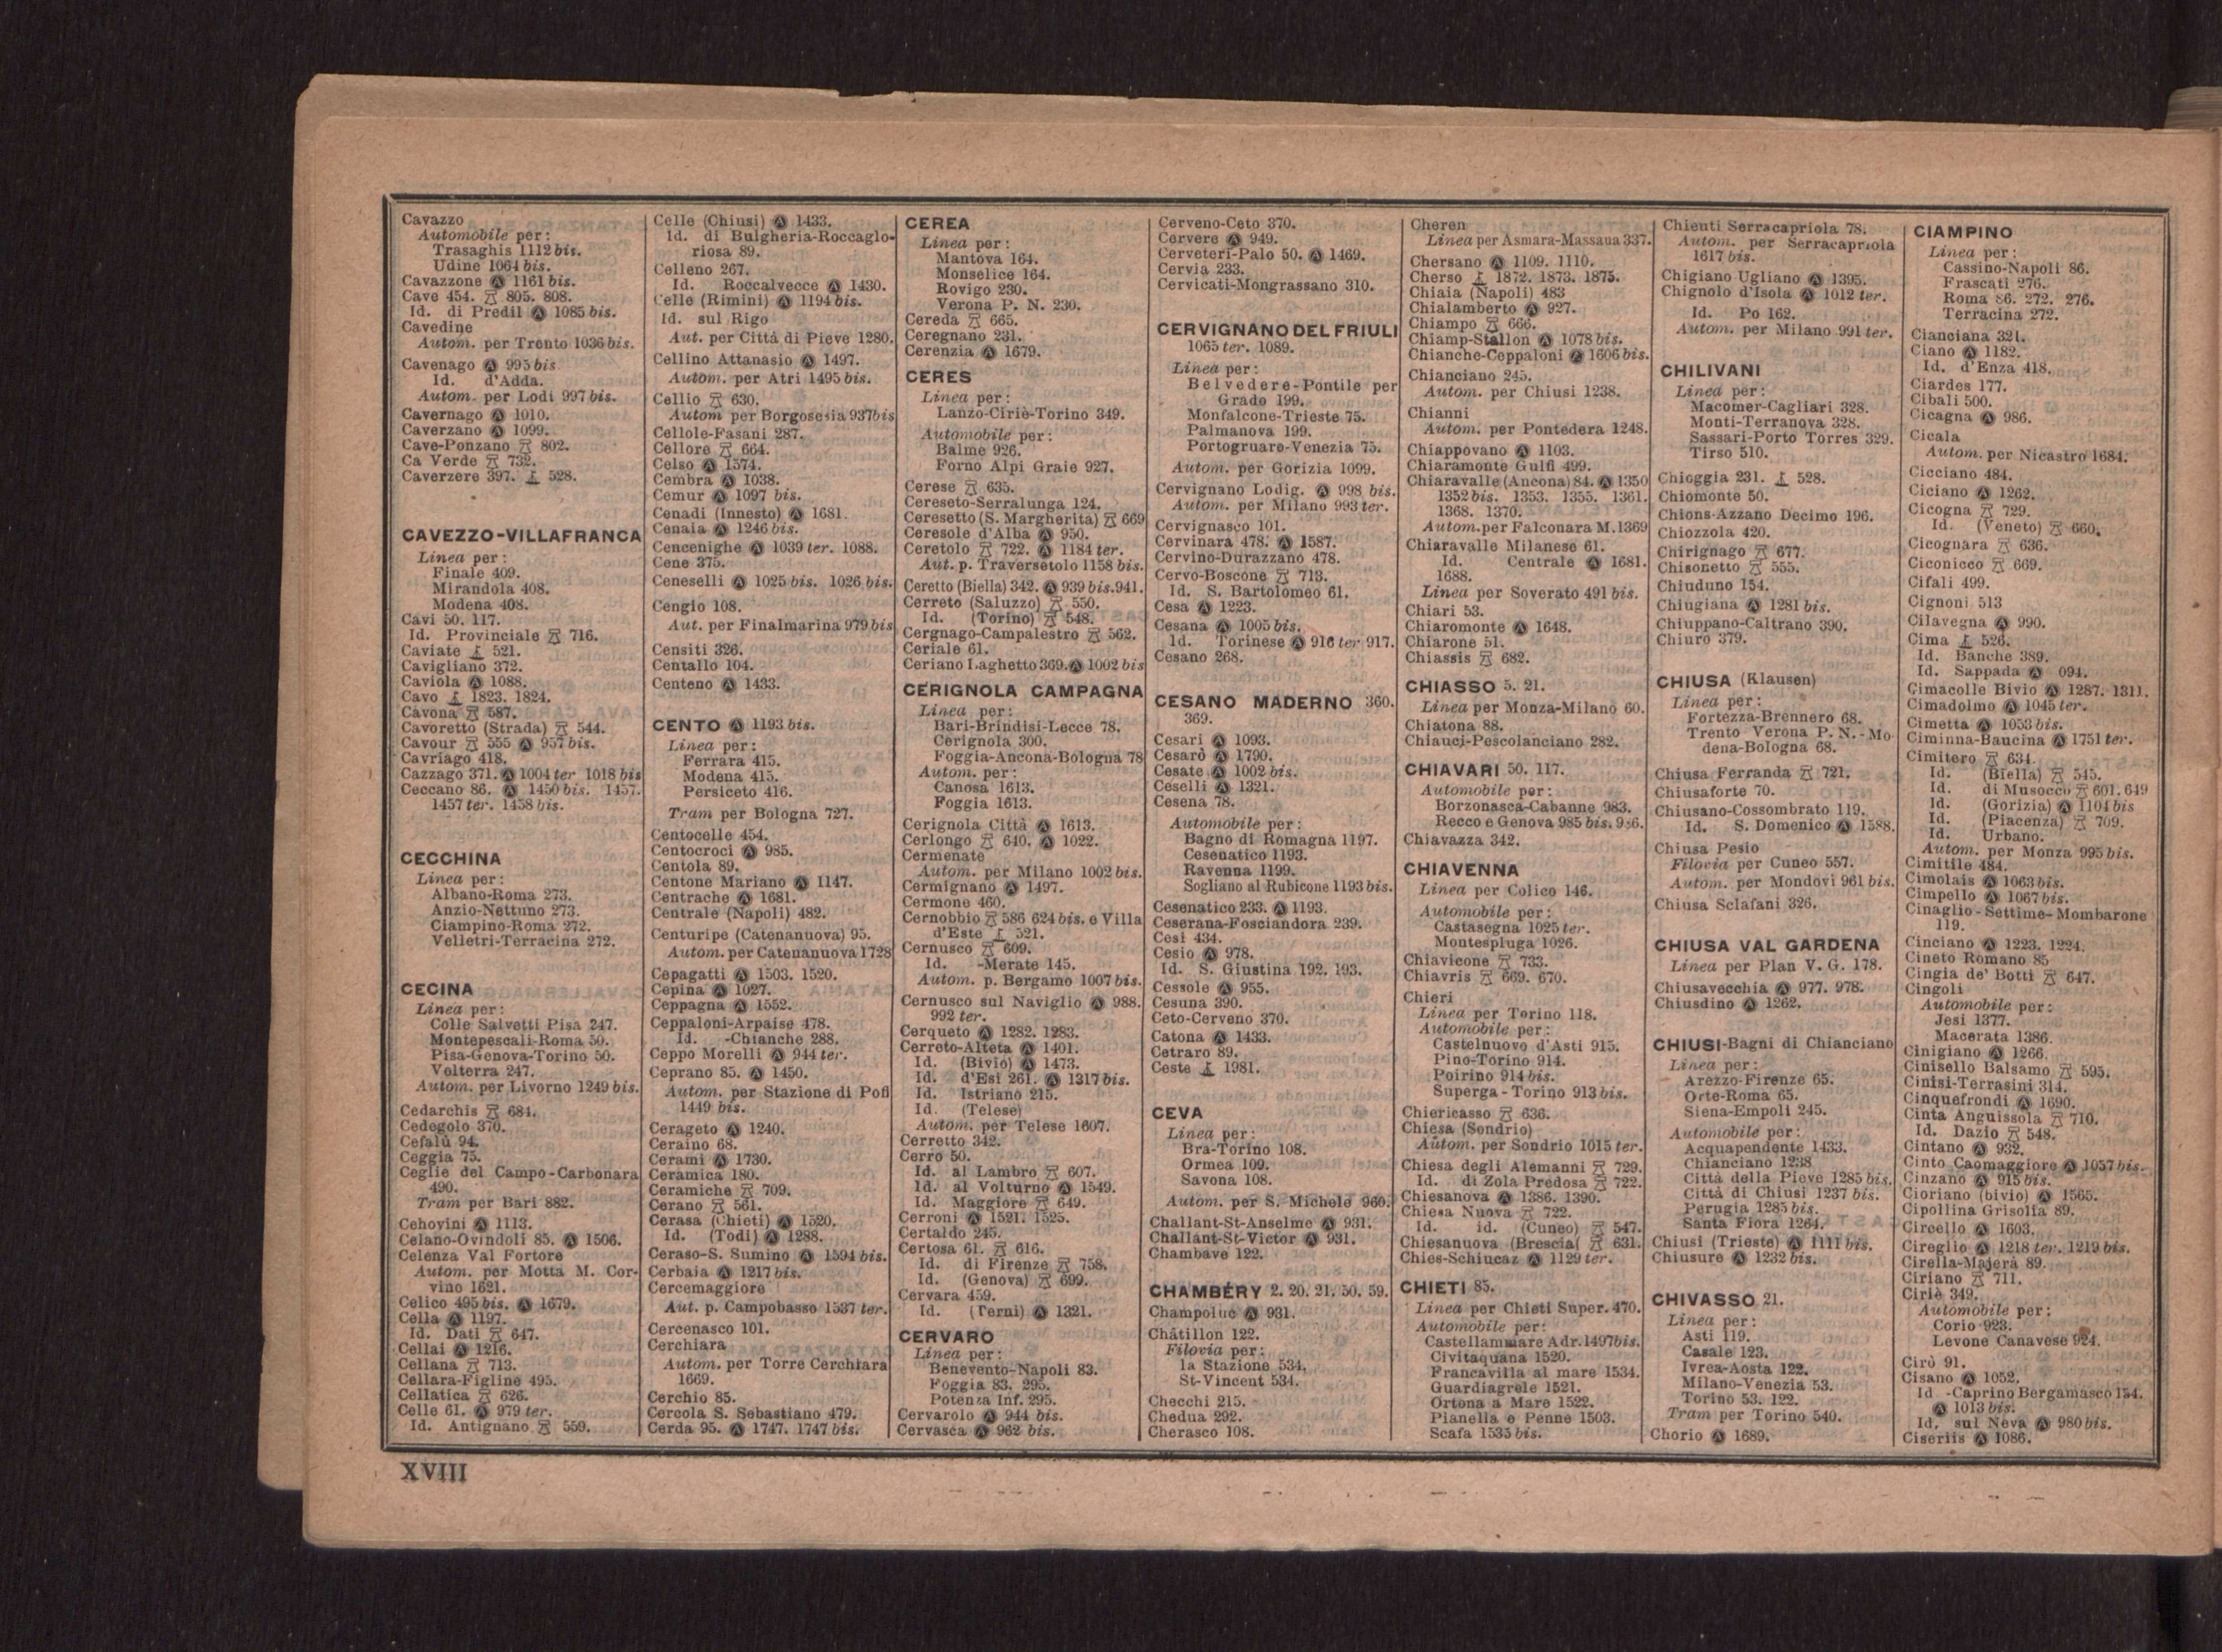 Cavazzo
Automobile per:
Trasaghis 1112 bis.
Udine 1064 bis.
Cavazzone Ⓐ 1161 bis.
Cave 454. 805. 808.
Id. di Predil Ⓐ 1085 bis.
Cavedine
Autom. per Trento 1036 bis.
Cavenago Ⓐ 995 bis
Id. d'Adda.
Autom. per Lodi 997 bis.
Cavernago Ⓐ 1010.
Caverzano Ⓐ 1099.
Cave-Ponzano 802.
Ca Verde 732.
Caverzere 397. 528.
CAVEZZO-VILLAFRANCA
Linea per:
Finale 409.
Mirandola 408.
Modena 408.
Cavi 50. 117.
Id. Provinciale 716.
Caviate 521.
Cavigliano 372.
Caviola Ⓐ 1088.
Cavo 1823. 1824.
Cavona 587.
Cavoretto (Strada) 544.
Cavour 555 Ⓐ 957 bis.
Cavriago 418.
Cazzago 371. Ⓐ 1004 ter 1018 bis
Ceccano 86. Ⓐ 1450 bis. 1457.
1457 ter. 1458 bis.
CECCHINA
Linea per:
Albano-Roma 273.
Anzio-Nettuno 273.
Ciampino-Roma 272.
Velletri-Terracina 272.
CECINA
Linea per:
Colle Salvetti Pisa 247.
Montepescali-Roma 50.
Pisa-Genova-Torino 50.
Volterra 247.
Autom. per Livorno 1249 bis.
Cedarchis 684.
Cedegolo 370.
Cefalù 94.
Ceggia 75.
Ceglie del Campo-Carbonara
490.
Tram per Bari 882.
Cehovini Ⓐ 1113.
Celano-Ovindoli 85. Ⓐ 1506.
Celenza Val Fortore
Autom. per Motta M. Cor-
vino 1621.
Celico 495 bis. Ⓐ 1679.
Cella Ⓐ 1197.
Id. Dati 647.
Cellai Ⓐ 1216.
Cellana 713.
Cellara-Figline 495.
Cellatica 626.
Celle 61. Ⓐ 979 ter.
Id. Antignano 559.
Celle (Chiusi) Ⓐ 1433.
Id. di Bulgheria-Roccaglo-
riosa 89.
Celleno 267.
Id. Roccalvecce Ⓐ 1430.
Celle (Rimini) Ⓐ 1194 bis.
Id. sul Rigo
Aut. per Città di Pieve 1280.
Cellino Attanasio Ⓐ 1497.
Autom. per Atri 1495 bis.
Cellio 630.
Autom per Borgosesia 937bis
Cellole-Fasani 287.
Cellore 664.
Celso Ⓐ 1574.
Cembra Ⓐ 1038.
Cemur Ⓐ 1097 bis.
Cenadi (Innesto) Ⓐ 1681.
Cenaia Ⓐ 1246 bis.
Cencenighe Ⓐ 1039 ter. 1088.
Cene 375.
Ceneselli Ⓐ 1025 bis. 1026 bis.
Cengio 108.
Aut. per Finalmarina 979 bis
Censiti 326.
Centallo 104.
Centeno Ⓐ 1433.
CENTO Ⓐ 1193 bis.
Linea per:
Ferrara 415.
Modena 415.
Persiceto 416.
Tram per Bologna 727.
Centocelle 454.
Centocroci Ⓐ 985.
Centola 89.
Centone Mariano Ⓐ 1147.
Centrache Ⓐ 1681.
Centrale (Napoli) 482.
Centuripe (Catenanuova) 95.
Autom. per Catenanuova 1728
Cepagatti Ⓐ 1503. 1520.
Cepina Ⓐ 1027.
Ceppagna Ⓐ 1552.
Ceppaloni-Arpaise 478.
Id. -Chianche 288.
Ceppo Morelli Ⓐ 944 ter.
Ceprano 85. Ⓐ 1450.
Autom. per Stazione di Pofi
1449 bis.
Cerageto Ⓐ 1240.
Ceraino 68.
Cerami Ⓐ 1730.
Ceramica 180.
Ceramiche 709.
Cerano 561.
Cerasa (Chieti) Ⓐ 1520.
Id. (Todi) Ⓐ 1288.
Ceraso-S. Sumino Ⓐ 1594 bis.
Cerbaia Ⓐ 1217 bis.
Cercemaggiore
Aut. p. Campobasso 1537 ter.
Cercenasco 101.
Cerchiara
Autom. per Torre Cerchiara
1669.
Cerchio 85.
Cercola S. Sebastiano 479.
Cerda 95. Ⓐ 1747. 1747 bis.
CEREA
Linea per:
Mantova 164.
Monselice 164.
Rovigo 230.
Verona P. N. 230.
Cereda 665.
Ceregnano 231.
Cerenzia Ⓐ 1679.
CERES
Linea per:
Lanzo-Ciriè-Torino 349.
Automobile per:
Balme 926.
Forno Alpi Graie 927.
Cerese 635.
Cereseto-Serralunga 124.
Ceresetto (S. Margherita) 669
Ceresole d'Alba Ⓐ 950.
Ceretolo 722. Ⓐ 1184 ter.
Aut. p. Traversetolo 1158 bis.
Ceretto (Biella) 342. Ⓐ 939 bis.941.
Cerreto (Saluzzo) 550.
Id. (Torino) 548.
Cergnago-Campalestro 562.
Ceriale 61.
Ceriano Laghetto 369. Ⓐ 1002 bis
CERIGNOLA CAMPAGNA
Linea per:
Bari-Brindisi-Lecce 78.
Cerignola 300.
Foggia-Ancona-Bologna 78
Autom. per:
Canosa 1613.
Foggia 1613.
Cerignola Città Ⓐ 1613.
Cerlongo 640. Ⓐ 1022.
Cermenate
Autom. per Milano 1002 bis.
Cermignano Ⓐ 1497.
Cermone 460.
Cernobbio 586 624 bis. e Villa
d'Este 521.
Cernusco 609.
Id. -Merate 145.
Autom. p. Bergamo 1007 bis.
Cernusco sul Naviglio Ⓐ 988.
992 ter.
Cerqueto Ⓐ 1282. 1283.
Cerreto-Alteta Ⓐ 1401.
Id. (Bivio) Ⓐ 1473.
Id. d'Esi 261. Ⓐ 1317 bis.
Id. Istriano 215.
Id. (Telese)
Autom. per Telese 1607.
Cerretto 342.
Cerro 50.
Id. al Lambro 607.
Id. al Volturno Ⓐ 1549.
Id. Maggiore 649.
Cerroni Ⓐ 1521. 1525.
Certaldo 245.
Certosa 61. 616.
Id. di Firenze 758.
Id. (Genova) 699.
Cervara 459.
Id. (Terni) Ⓐ 1321.
CERVARO
Linea per:
Benevento-Napoli 83.
Foggia 83. 295.
Potenza Inf. 295.
Cervarolo Ⓐ 944 bis.
Cervasca Ⓐ 962 bis.
Cerveno-Ceto 370.
Cervere Ⓐ 949.
Cerveteri-Palo 50. Ⓐ 1469.
Cervia 233.
Cervicati-Mongrassano 310.
CERVIGNANO DEL FRIULI
1065 ter. 1089.
Linea per:
Belvedere-Pontile per
Grado 199.
Monfalcone-Trieste 75.
Palmanova 199.
Portogruaro-Venezia 75.
Autom. per Gorizia 1099.
Cervignano Lodig. Ⓐ 998 bis.
Autom. per Milano 993 ter.
Cervignasco 101.
Cervinara 478. Ⓐ 1587.
Cervino-Durazzano 478.
Cervo-Boscone 713.
Id. S. Bartolomeo 61.
Cesa Ⓐ 1223.
Cesana Ⓐ 1005 bis.
Id. Torinese Ⓐ 916 ter 917.
Cesano 268.
CESANO MADERNO 360.
369.
Cesari Ⓐ 1093.
Cesarò Ⓐ 1790.
Cesate Ⓐ 1002 bis.
Ceselli Ⓐ 1321.
Cesena 78.
Automobile per:
Bagno di Romagna 1197.
Cesenatico 1193.
Ravenna 1199.
Sogliano al Rubicone 1193 bis.
Cesenatico 233. Ⓐ 1193.
Ceserana-Fosciandora 239.
Cesi 434.
Cesio Ⓐ 978.
Id. S. Giustina 192. 193.
Cessole Ⓐ 955.
Cesuna 390.
Ceto-Cerveno 370.
Catona Ⓐ 1433.
Cetraro 89.
Ceste 1981.
CEVA
Linea per:
Bra-Torino 108.
Ormea 109.
Savona 108.
Autom. per S. Michele 960.
Challant-St-Anselme Ⓐ 931.
Challant-St-Victor Ⓐ 931.
Chambave 122.
CHAMBÉRY 2. 20. 21. 50. 59.
Champoluc Ⓐ 931.
Châtillon 122.
Filovia per:
la Stazione 534.
St-Vincent 534.
Checchi 215.
Chedua 292.
Cherasco 108.
Cheren
Linea per Asmara-Massaua 337.
Chersano Ⓐ 1109. 1110.
Cherso 1872. 1873. 1875.
Chiaia (Napoli) 483
Chialamberto Ⓐ 927.
Chiampo 666.
Chiamp-Stallon Ⓐ 1078 bis.
Chianche-Ceppaloni Ⓐ 1606 bis.
Chianciano 245.
Autom. per Chiusi 1238.
Chianni
Autom. per Pontedera 1248.
Chiappovano Ⓐ 1103.
Chiaramonte Gulfi 499.
Chiaravalle (Ancona) 84. Ⓐ 1350
1352 bis. 1353. 1355. 1361.
1368. 1370.
Autom. per Falconara M. 1369
Chiaravalle Milanese 61.
Id. Centrale Ⓐ 1681.
1688.
Linea per Soverato 491 bis.
Chiari 53.
Chiaromonte Ⓐ 1648.
Chiarone 51.
Chiassis 682.
CHIASSO 5. 21.
Linea per Monza-Milano 60.
Chiatona 88.
Chiauci-Pescolanciano 282.
CHIAVARI 50. 117.
Automobile per:
Borzonasca-Cabanne 983.
Recco e Genova 985 bis. 986.
Chiavazza 342.
CHIAVENNA
Linea per Colico 146.
Automobile per:
Castasegna 1025 ter.
Montespluga 1026.
Chiavicone 733.
Chiavris 669. 670.
Chieri
Linea per Torino 118.
Automobile per:
Castelnuovo d'Asti 915.
Pino-Torino 914.
Poirino 914 bis.
Superga-Torino 913 bis.
Chiericasso 636.
Chiesa (Sondrio)
Autom. per Sondrio 1015 ter.
Chiesa degli Alemanni 729.
Id. di Zola Predosa 722.
Chiesanova Ⓐ 1386. 1390.
Chiesa Nuova 722.
Id. id. (Cuneo) 547.
Chiesanuova (Brescia( 631.
Chies-Schiucaz Ⓐ 1129 ter.
CHIETI 85.
Linea per Chieti Super. 470.
Automobile per:
Castellammare Adr. 1497bis.
Civitaquana 1520.
Francavilla al mare 1534.
Guardiagrele 1521.
Ortona a Mare 1522.
Pianella e Penne 1503.
Scafa 1535 bis.
Chieuti Serracapriola 78.
Autom. per Serracapriola
1617 bis.
Chigiano Ugliano Ⓐ 1395.
Chignolo d'Isola Ⓐ 1012 ter.
Id. Po 162.
Autom. per Milano 991 ter.
CHILIVANI
Linea per:
Macomer-Cagliari 328.
Monti-Terranova 328.
Sassari-Porto Torres 329.
Tirso 510.
Chioggia 231. 528.
Chiomonte 50.
Chions-Azzano Decimo 196.
Chiozzola 420.
Chirignago 677.
Chisonetto 555.
Chiuduno 154.
Chiugiana Ⓐ 1281 bis.
Chiuppano-Caltrano 390.
Chiuro 379.
CHIUSA (Klausen)
Linea per:
Fortezza-Brennero 68.
Trento Verona P. N.-Mo-
dena-Bologna 68.
Chiusa Ferranda 721.
Chiusaforte 70.
Chiusano-Cossombrato 119.
Id. S. Domenico Ⓐ 1588.
Chiusa Pesio
Filovia per Cuneo 557.
Autom. per Mondovì 961 bis.
Chiusa Sclafani 326.
CHIUSA VAL GARDENA
Linea per Plan V. G. 178.
Chiusavecchia Ⓐ 977. 978.
Chiusdino Ⓐ 1262.
CHIUSI-Bagni di Chianciano
Linea per:
Arezzo-Firenze 65.
Orte-Roma 65.
Siena-Empoli 245.
Automobile per:
Acquapendente 1433.
Chianciano 1238
Città della Pieve 1285 bis.
Città di Chiusi 1237 bis.
Perugia 1285 bis.
Santa Fiora 1264.
Chiusi (Trieste) Ⓐ 1111 bis.
Chiusure Ⓐ 1232 bis.
CHIVASSO 21.
Linea per:
Asti 119.
Casale 123.
Ivrea-Aosta 122.
Milano-Venezia 53.
Torino 53. 122.
Tram per Torino 540.
Chorio Ⓐ 1689.
CIAMPINO
Linea per:
Cassino-Napoli 86.
Frascati 276.
Roma 86. 272. 276.
Terracina 272.
Cianciana 321.
Ciano Ⓐ 1182.
Id. d'Enza 418.
Ciardes 177.
Cibali 500.
Cicagna Ⓐ 986.
Cicala
Autom. per Nicastro 1684.
Cicciano 484.
Ciciano Ⓐ 1262.
Cicogna 729.
Id. (Veneto) 660.
Cicognara 636.
Ciconicco 669.
Cifali 499.
Cignoni 513
Cilavegna Ⓐ 990.
Cima 526.
Id. Banche 389.
Id. Sappada Ⓐ 094.
Cimacolle Bivio Ⓐ 1287. 1311.
Cimadolmo Ⓐ 1045 ter.
Cimetta Ⓐ 1053 bis.
Ciminna-Baucina Ⓐ 1751 ter.
Cimitero 634.
Id. (Biella) 545.
Id. di Musocco 601. 649
Id. (Gorizia) Ⓐ 1104 bis
Id. (Piacenza) 709.
Id. Urbano.
Autom. per Monza 995 bis.
Cimitile 484.
Cimolais Ⓐ 1063 bis.
Cimpello Ⓐ 1067 bis.
Cinaglio-Settime-Mombarone
119.
Cinciano Ⓐ 1223. 1224.
Cineto Romano 85
Cingia de' Botti 647.
Cingoli
Automobile per:
Jesi 1377.
Macerata 1386.
Cinigiano Ⓐ 1266.
Cinisello Balsamo 595.
Cinisi-Terrasini 314.
Cinquefrondi Ⓐ 1690.
Cinta Anguissola 710.
Id. Dazio 548.
Cintano Ⓐ 932.
Cinto Caomaggiore Ⓐ 1057 bis.
Cinzano Ⓐ 915 bis.
Cioriano (bivio) Ⓐ 1565.
Cipollina Grisolia 89.
Circello Ⓐ 1603.
Cireglio Ⓐ 1218 ter. 1219 bis.
Cirella-Majerà 89.
Ciriano 711.
Ciriè 349.
Automobile per:
Corio 923.
Levone Canavese 924.
Cirò 91.
Cisano Ⓐ 1052.
Id -Caprino Bergamasco 154.
Ⓐ 1013 bis.
Id. sul Neva Ⓐ 980 bis.
Ciseriis Ⓐ 1086.
XVIII